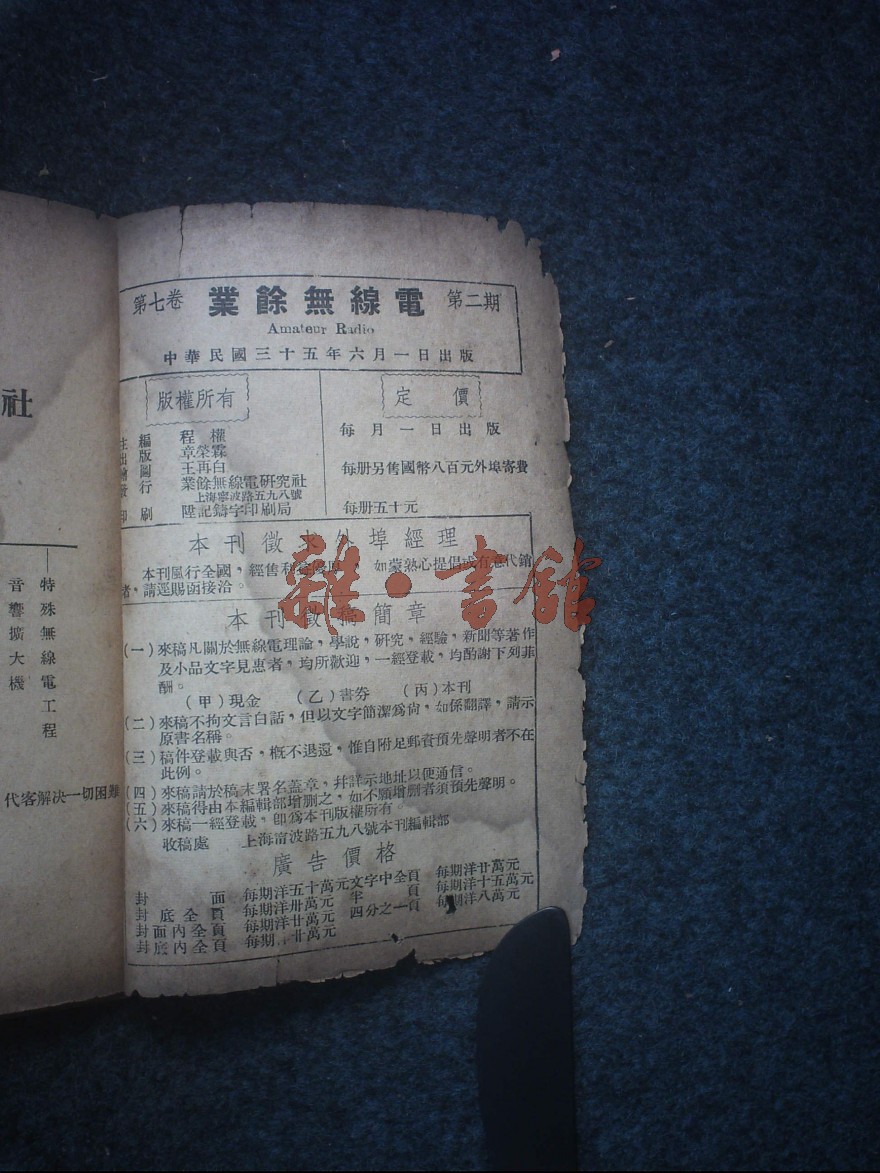 第七卷 業餘無線電 第二期
Amateur Radio
中華民國三十五年六月一日出版
版權所有
主編 程權
出版 章榮霖
繪圖 王再白
發行 業餘無線電研究社
上海寧波路五九八號
印刷 陞記鑄字印刷局
定價
每月一日出版
每册另售國幣八百元外埠寄費
每册五十元
本刊徵求外埠經理
本刊風行全國，經售利益優厚， 如蒙熱心提倡或有意代銷
者，請逕賜函接洽。
本刊徵稿簡章
(一)來稿凡關於無線電理論，學說，研究，經驗，新聞等著作
及小品文字見惠者，均所歡迎，一經登載，均酌謝下列菲
酬。
(甲)現金 (乙)書劵 (丙)本刊
(二)來稿不拘文言白話，但以文字簡潔爲尙，如係翻譯，請示
原書名稱。
(三)稿件登載與否，槪不退還，惟自附足郵資預先聲明者不在
此例。
(四)來稿請於稿末署名蓋章，幷詳示地址以便通信。
(五)來稿得由本編輯部增删之，如不願增删者須預先聲明。
(六)來稿一經登載，卽爲本刊版權所有。
收稿處 上海甯波路五九八號本刊編輯部
廣告價格
封面 每期洋五十萬元 文字中全頁 每期洋廿萬元
封底全頁 每期洋卅萬元 半頁 每期洋十五萬元
封面內全頁 每期洋廿萬元 四分之一頁 每期洋八萬元
封底內全頁 每期 廿萬元
社
特殊無線電工程
音響擴大機
代客解決一切困難
雜·書館